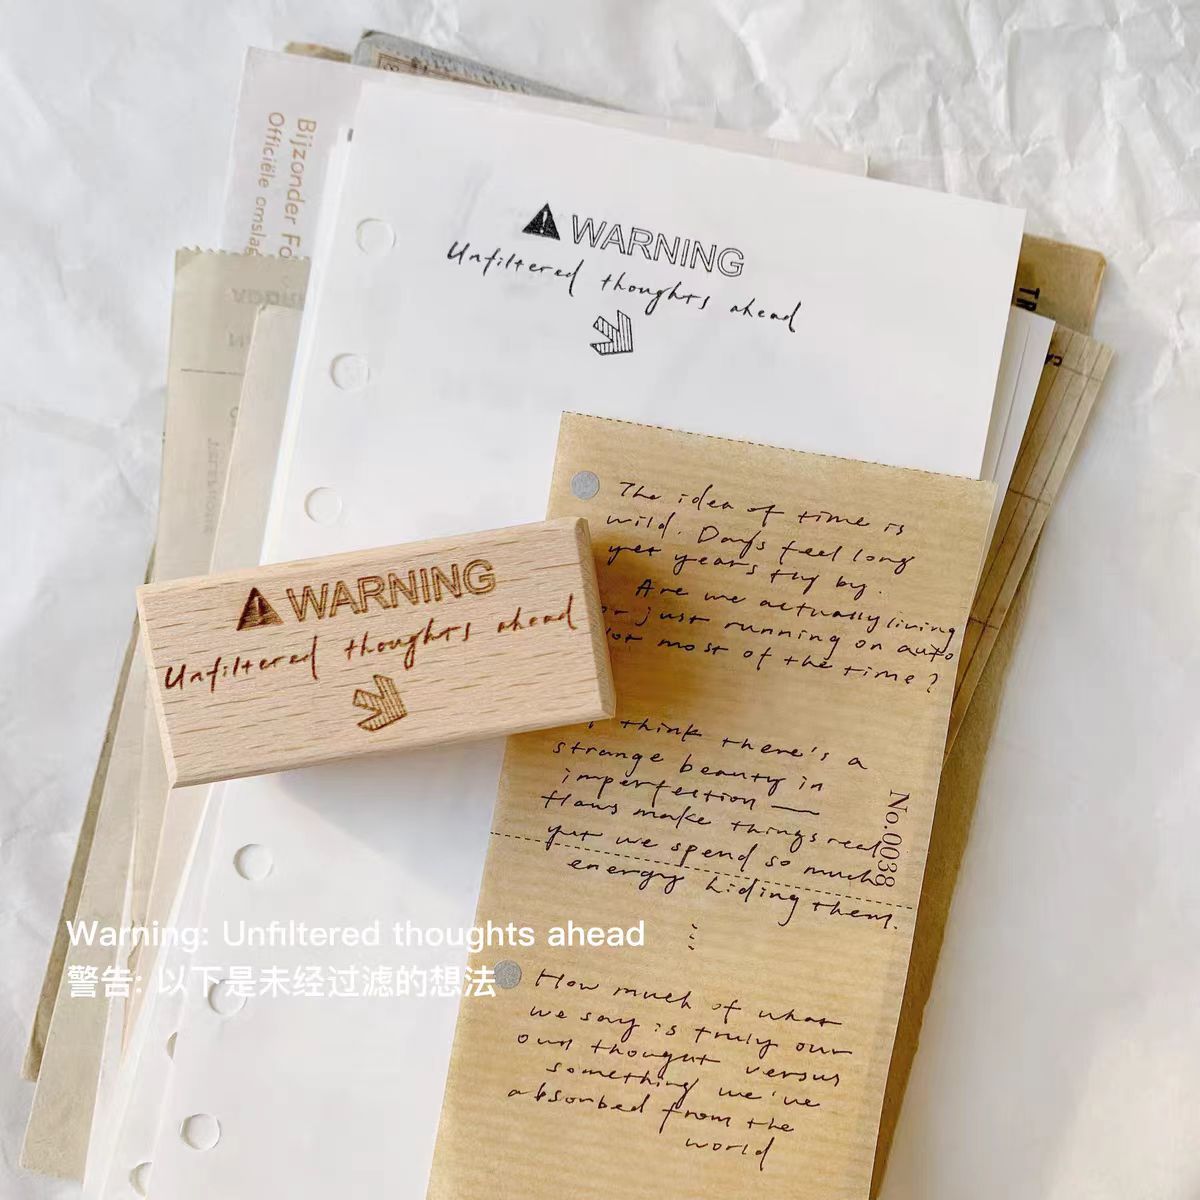 Bijzonder Fo
Officiële omslag
⚠ WARNING
Unfiltered thoughts ahead
TR
⚠ WARNING
Unfiltered thoughts ahead
The idea of time is
wild. Days feel long
yet years fly by.
Are we actually living
or just running on auto
most of the time?
I think there's a
strange beauty in
imperfection —
flaws make things real
yet we spend so much
energy hiding them.
No.0038
How much of what
we say is truly our
own thought versus
something we've
absorbed from the
world
Warning: Unfiltered thoughts ahead
警告: 以下是未经过滤的想法